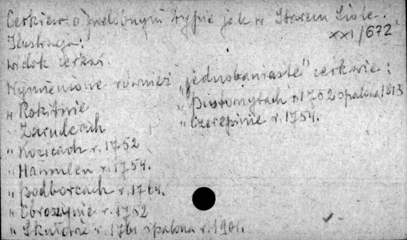 Cerkiew o podobnym typie jak w Starem Siole.
XXI/672
Ilustracja:
widok cerkwi
Wymienione również "jednobaniaste" cerkwie:
" Rokitnie
" Zarudcach
" Kozicach r. 1752
" Hamulen r. 1754.
" Podborcach r. 1764.
" Obroszynie r. 1752
" Skniłów r. 1761 spalona r. 1901.
" Pustomytach r. 1752 spalona 1913
" Czerepinie r. 1754.